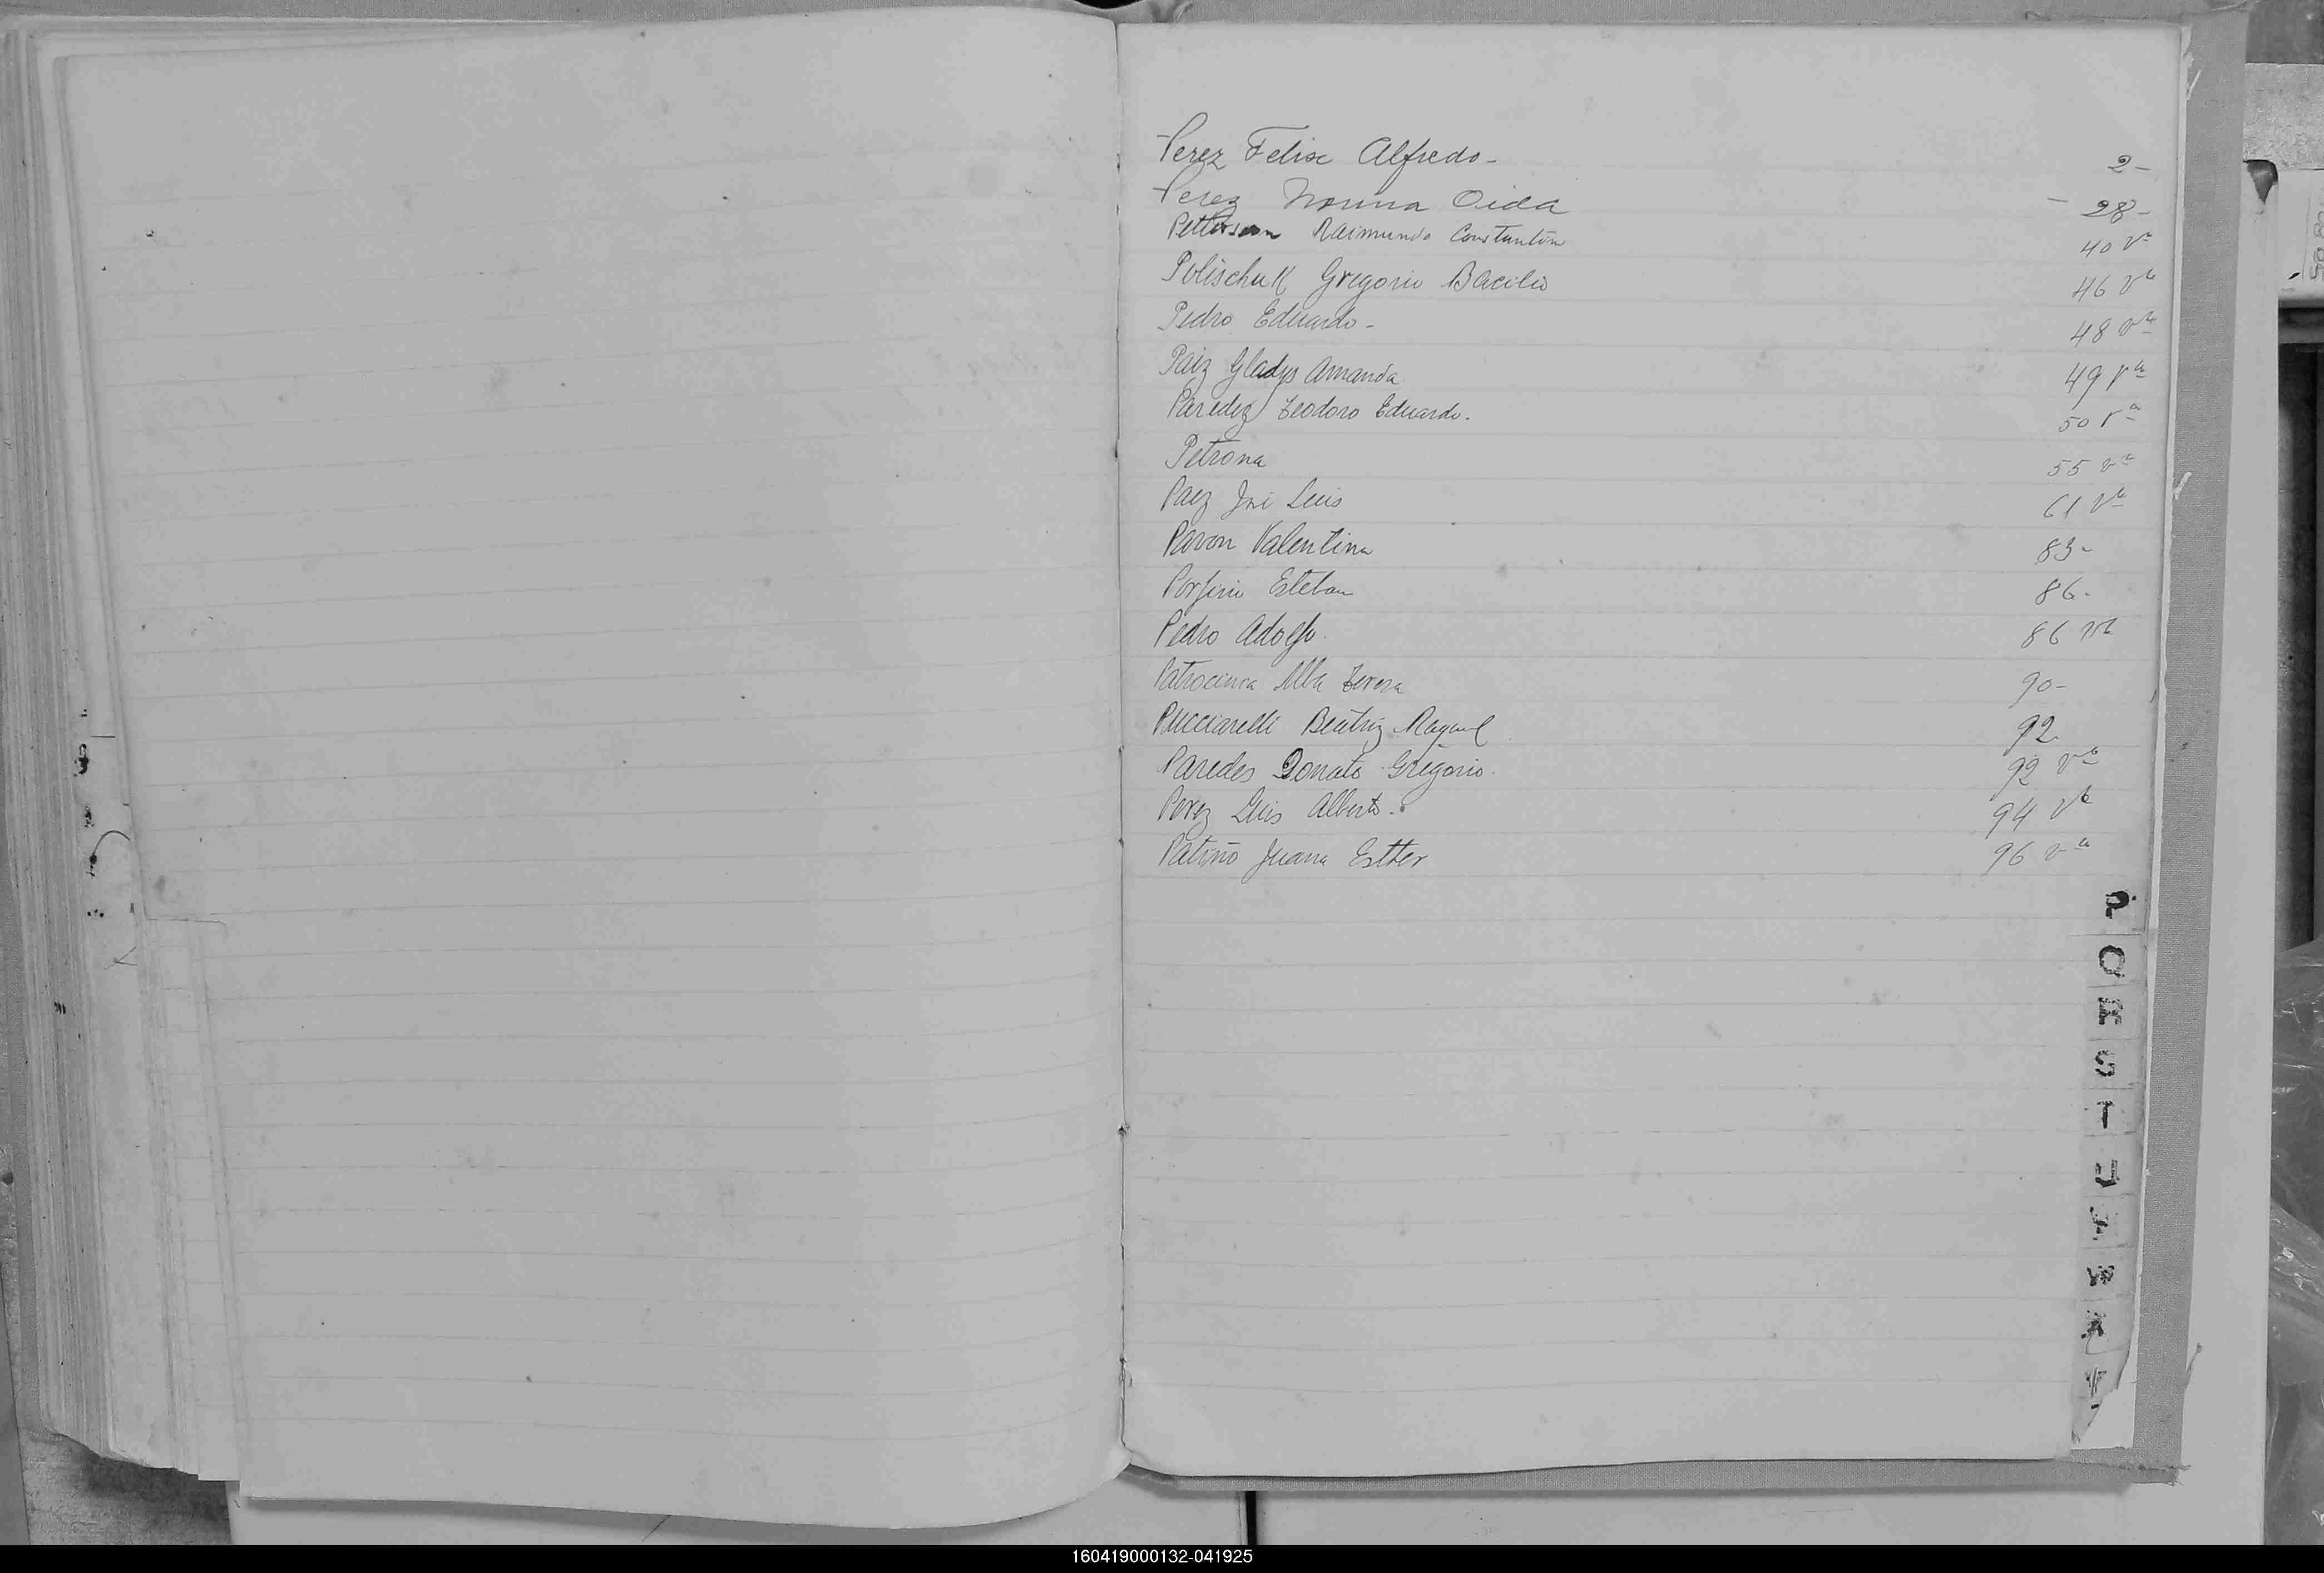 Perez Felix Alfredo - 2 -
Perez Norma Oida - 28 -
Petterson Raimundo Constantin 40 vta
Polischuk Gregorio Bacilio 46 vta
Pedro Eduardo - 48 vta
Paiz Gladys Amanda 49 vta
Paredez Teodoro Eduardo. 50 vta
Petrona 55 vta
Paez José Luis 61 vta
Pavon Valentina 83 -
Porfirio Esteban 86 -
Pedro Adolfo. 86 vta
Alba Teresa 90 -
Pucciarelli Beatriz Raquel 92
Paredes Donato Gregorio. 92 vta
Perez Luis Alberto. 94 vta
Patiño Juana Esther 96 vta
P
Q
R
S
T
U
W
X
Y
160419000132-041925